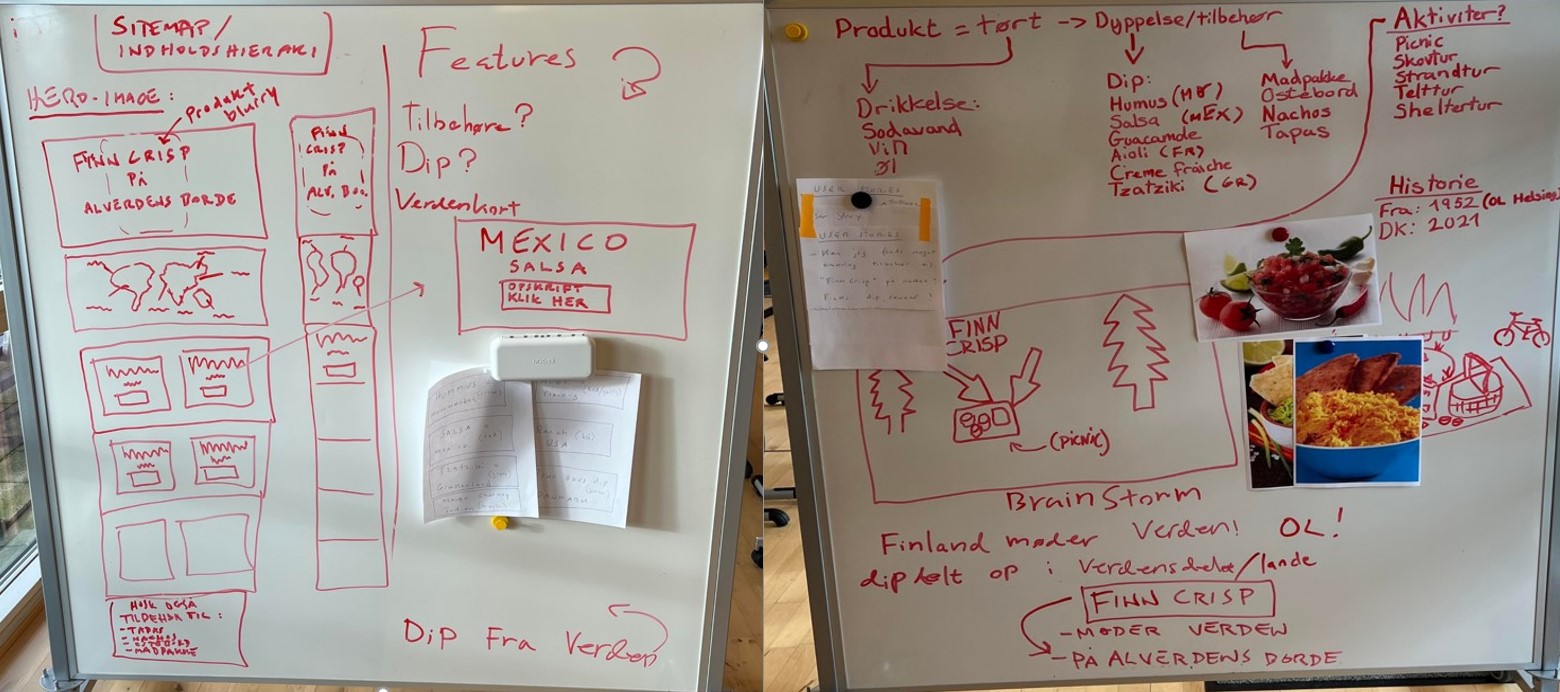 SITEMAP/
INDHOLDSHIERAKI
HERO-IMAGE:
Produkt
blurry
FINN CRISP
PÅ
ALVERDENS BORDE
FINN
CRISP
PÅ
ALV. BO..
HUSK OGSÅ
TILBEHØR TIL:
- TAPAS
- NACHOS
- OSTEBORD
- MADPAKKE
Features
Tilbehøre?
Dip?
Verdenkort
MEXICO
SALSA
OPSKRIFT
KLIK HER
HUMMUS
SALSA
Dip Fra Verden
Produkt = tørt -> Dyppelse/tilbehør
Drikkelse:
Sodavand
Vin
Øl
Dip:
Humus (MØ)
Salsa (MEX)
Guacamole
Aioli (FR)
Creme fraiche
Tzatziki (GR)
Madpakke
Ostebord
Nachos
Tapas
Aktiviter?
Picnic
Skovtur
Strandtur
Telttur
Sheltertur
Historie
Fra: 1952 (OL Helsing
DK: 2021
USER STORIES
USER STORIES
FINN
CRISP
(PICNIC)
BrainStorm
Finland møder Verden! OL!
dip delt op i verdensdele/lande
FINN CRISP
- MØDER VERDEN
- PÅ ALVERDENS BORDE